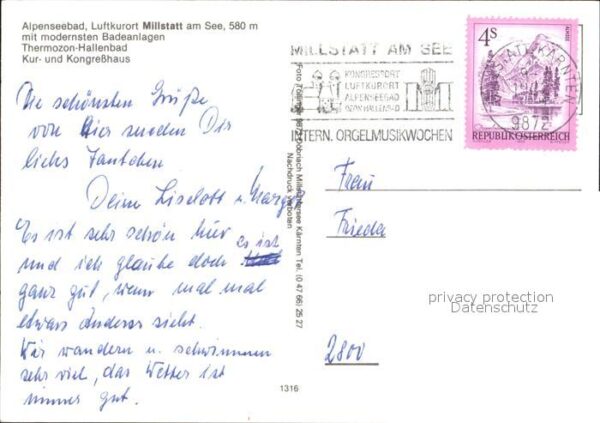 Alpenseebad, Luftkurort Millstatt am See, 580 m
mit modernsten Badeanlagen
Thermozon-Hallenbad
Kur- und Kongreßhaus
Die schönsten Grüße
von hier senden Dir
liebs Tantchen
Deine Liselott u. Margot
Es ist sehr schön hier
und ich glaube doch es ist
ganz gut, wenn mal mal
etwas Anderes sieht.
Wir wandern u. schwimmen
sehr viel, das Wetter ist
immer gut.
MILLSTATT AM SEE
KONGRESSORT
LUFTKURORT
ALPENSEEBAD
OZON HALLENBAD
INTERN. ORGELMUSIKWOCHEN
KÄRNTEN
9872
4S
REPUBLIK ÖSTERREICH
9872 Döbriach Millstättersee Kärnten Tel. (0 47 66) 25 27
Nachdruck verboten
Frau
Frieda
2800
privacy protection
Datenschutz
1316